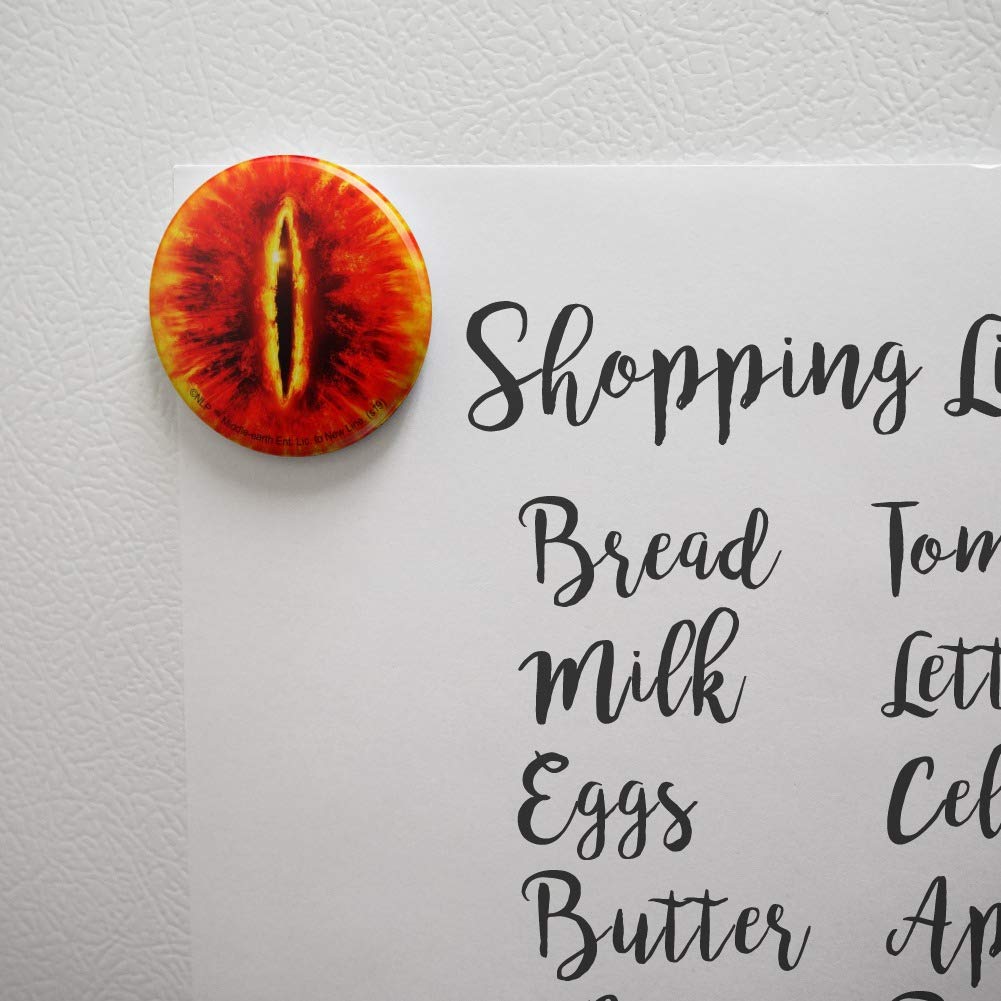 ©NLP ™ Middle-earth Ent. Lic. to New Line. (s19)
Shopping Li
Bread Tom
Milk Lett
Eggs Cel
Butter Ap